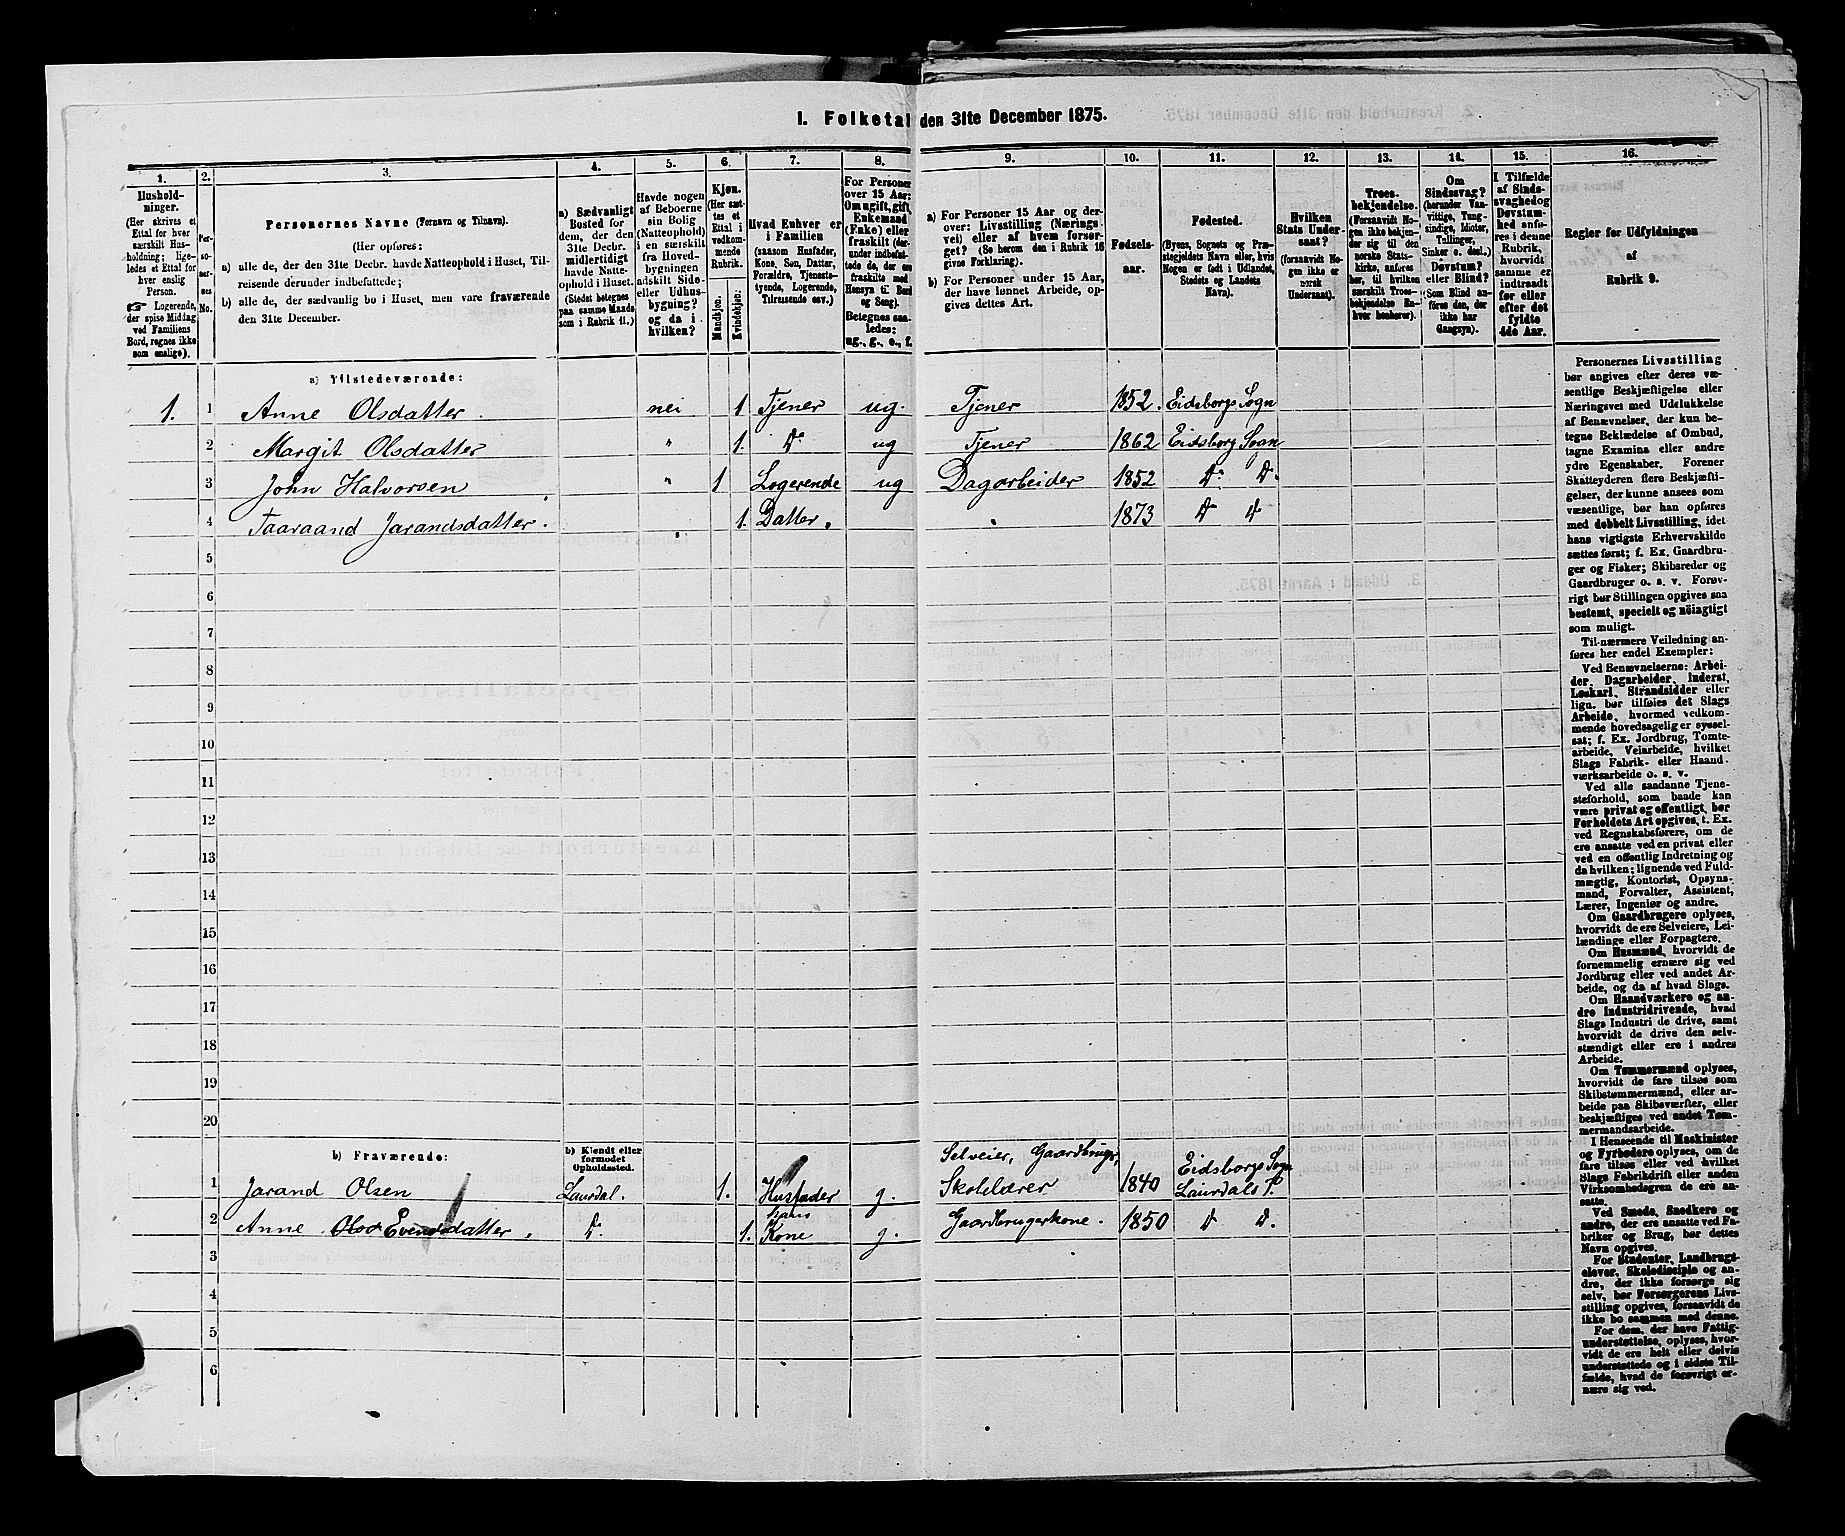 1. Folketal den 31te December 1875.
1. 2. 3. 4. 5. 6. 7. 8. 9. 10. 11. 12. 13. 14. 15. 16.
Hushold-
ninger.
(Her skrives et
Ettal for hver
særskilt Hus-
holdning; lige-
ledes et Ettal for
hver enslig
Person.
☞ Logerende,
der spise Middag
ved Familiens
Bord, regnes ikke
som enslige).
Per-
soner-
nes
No.
Personernes Navne (Fornavn og Tilnavn).
(Her opføres:
a) alle de, der den 31te Decbr. havde Natteophold i Huset, Til-
reisende derunder indbefattede;
b) alle de, der sædvanlig bo i Huset, men vare fraværende
den 31te December.
a) Sædvanligt
Bosted for
dem, der den
31te Decbr.
midlertidigt
havde Natte-
ophold i Huset.
(Stedet betegnes
paa samme Maade
som i Rubrik 11.)
Havde nogen
af Beboerne
sin Bolig
(Natteophold)
i en særskilt
fra Hoved-
bygningen
adskilt Side-
eller Udhus-
bygning?
og da i
hvilken?
Kjøn.
(Her sæt-
tes et
Ettal i
vedkom-
mende
Rubrik.
Mandkjøn.
Kvindekjøn.
Hvad Enhver er
i Familien
(saasom Husfader,
Kone, Søn, Datter,
Forældre, Tjeneste-
tyende, Logerende,
Tilreisende osv.)
For Personer
over 15 Aar:
Om ugift, gift,
Enkemand
(Enke) eller
fraskilt (der-
under indbefat-
tede de, der ere
fraskilte med
Hensyn til Bord
og Seng).
Betegnes saa-
ledes:
ug., g., e., f.
a) For Personer 15 Aar og der-
over: Livsstilling (Nærings-
vei) eller af hvem forsør-
get? (Se herom den i Rubrik 16
givne Forklaring).
b) For Personer under 15 Aar,
der have lønnet Arbeide, op-
gives dettes Art.
Fødsels-
aar.
Fødested.
(Byens, Sognets og Præ-
stegjeldets Navn eller, hvis
Nogen er født i Udlandet,
Stedets og Landets
Navn).
Hvilken
Stats Under-
saat?
(forsaavidt No-
gen ikke er
norsk
Undersaat).
Troes-
bekjendelse.
(Forsaavidt No-
gen ikke bekjen-
der sig til den
norske Stats-
kirke, anføres
her, til hvilken
særskilt Troes-
bekjendelse En-
hver henhører).
Om
Sindssvag?
(herunder Van-
vittige, Tung-
sindige, Idioter,
Tullinger,
Sinker o. desl.).
Døvstum?
eller Blind?
(Som Blind an-
føres den, der
ikke har
Gangsyn).
I Tilfælde
af Sinds-
svaghed og
Døvstum-
hed anfø-
res i denne
Rubrik,
hvorvidt
samme er
indtraadt
før eller
efter det
fyldte
4de Aar.
Regler for Udfyldningen
af
Rubrik 9.
a) Tilstedeværende:
1. 1 Anne Olsdatter nei 1 Tjener ug. Tjener 1852. Eidsborgs Sogn
2 Margit Olsdatter " 1. do ug Tjener 1862 Eidsborg Sogn
3 John Halvorsen " 1 Logerende ug Dagarbeider 1852 do do.
4 Taaraand Jarandsdatter. 1. Datter. 1873 do do
5
6
7
8
9
10
11
12
13
14
15
16
17
18
19
20
b) Fraværende:
b) Kjendt eller
formodet
Opholdssted.
1 Jarand Olsen Laurdal. 1. Husfader g. Selveier, Gaardbruger, Skolelærer 1840 Eidsborgs Sogn Laurdals P.
2 Anne Evensdatter. do. 1. hans Kone g. Gaardbrugerkone. 1850 do do.
3
4
5
6
Personernes Livsstilling
bør angives efter deres væ-
sentlige Beskjæftigelse eller
Næringsvei med Udelukkelse
af Benævnelser, der kun be-
tegne Beklædelse af Ombud,
tagne Examina eller andre
ydre Egenskaber. Forener
Skatteyderen flere Beskjæfti-
gelser, der kunne ansees som
væsentlige, bør han opføres
med dobbelt Livsstilling, idet
hans vigtigste Erhvervskilde
sættes først; f. Ex. Gaardbru-
ger og Fisker; Skibsreder og
Gaardbruger o. s. v. Forøv-
rigt bør Stillingen opgives saa
bestemt, specielt og nöiagtigt
som muligt.
Til nærmere Veiledning an-
føres her endel Exempler:
Ved Benævnelserne: Arbei-
der, Dagarbeider, Inderst,
Løskarl, Strandsidder eller
lign. bør tilføies det Slags
Arbeide, hvormed vedkom-
mende hovedsagelig er syssel-
sat; f. Ex. Jordbrug, Tomte-
arbeide, Veiarbeide, hvilket
Slags Fabrik- eller Haand-
værksarbeide o. s. v.
Ved alle saadanne Tjene-
steforhold, som baade kan
være privat og offentligt, bør
Forholdets Art opgives, f. Ex.
ved Regnskabsførere, om de
ere ansatte ved en privat eller
ved en offentlig Indretning og
da hvilken; lignende ved Fuld-
mægtig, Kontorist, Opsyns-
mand, Forvalter, Assistent,
Lærer, Ingeniør og andre.
Om Gaardbrugere oplyses,
hvorvidt de ere Selveiere, Lei-
lændinge eller Forpagtere.
Om Husmænd, hvorvidt de
fornemmelig ernære sig ved
Jordbrug eller ved andet Ar-
beide, og da af hvad Slags.
Om Haandværkere og an-
dre Industridrivende, hvad
Slags Industri de drive, samt
hvorvidt de drive den selv-
stændigt eller ere i andres
Arbeide.
Om Tømmermænd oplyses,
hvorvidt de fare tilsøs som
Skibstømmermænd, eller ar-
beide paa Skibsværfter, eller
beskjæftiges ved andet Tøm-
mermandsarbeide.
I Henseende til Maskinister
og Fyrbødere oplyses, om de
fare tilsøs eller ved hvilket
Fabrikdrift eller anden
Virksomhedsgren de ere an-
satte.
Ved Smede, Snedkere og
andre, der ere ansatte ved Fa-
briker og Brug, bør dettes
Navn opgives.
For Studenter, Landbrugs-
elever, Skoledisciple og an-
dre, der ikke forsørge sig
selv, bør Forsørgerens Livs-
stilling opgives, forsaavidt de
ikke bo sammen med denne.
For dem, der have Fattig-
understøttelse, oplyses, hvor-
vidt de ere helt eller delvis
understøttede og i sidste Til-
fælde, hvad de forøvrigt er-
nære sig ved.